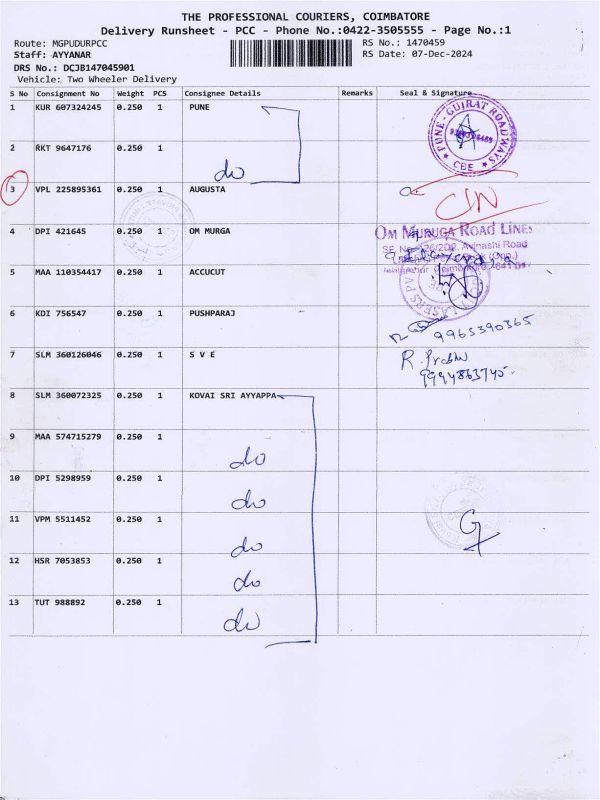 THE PROFESSIONAL COURIERS, COIMBATORE
Delivery Runsheet - PCC - Phone No.:0422-3505555 - Page No.:1
Route: MGPUDURPCC
RS No.: 1470459
Staff: AYYANAR
RS Date: 07-Dec-2024
DRS No.: DCJB147045901
Vehicle: Two Wheeler Delivery
S No Consignment No Weight PCS Consignee Details Remarks Seal & Signature
1 KUR 607324245 0.250 1 PUNE
PUNE - GUJRAT ROADWAYS
CBE
2 RKT 9647176 0.250 1
do
3 VPL 225895361 0.250 1 AUGUSTA
C/N
4 DPI 421645 0.250 1 OM MURGA
OM MURUGA ROAD LINES
Avinashi Road
5 MAA 110354417 0.250 1 ACCUCUT
6 KDI 756547 0.250 1 PUSHPARAJ
9965390365
7 SLM 360126046 0.250 1 S V E
R. Prabu
9994863745
8 SLM 360072325 0.250 1 KOVAI SRI AYYAPPA
9 MAA 574715279 0.250 1
do
10 DPI 5298959 0.250 1
do
11 VPM 5511452 0.250 1
do
12 HSR 7053853 0.250 1
do
13 TUT 988892 0.250 1
do